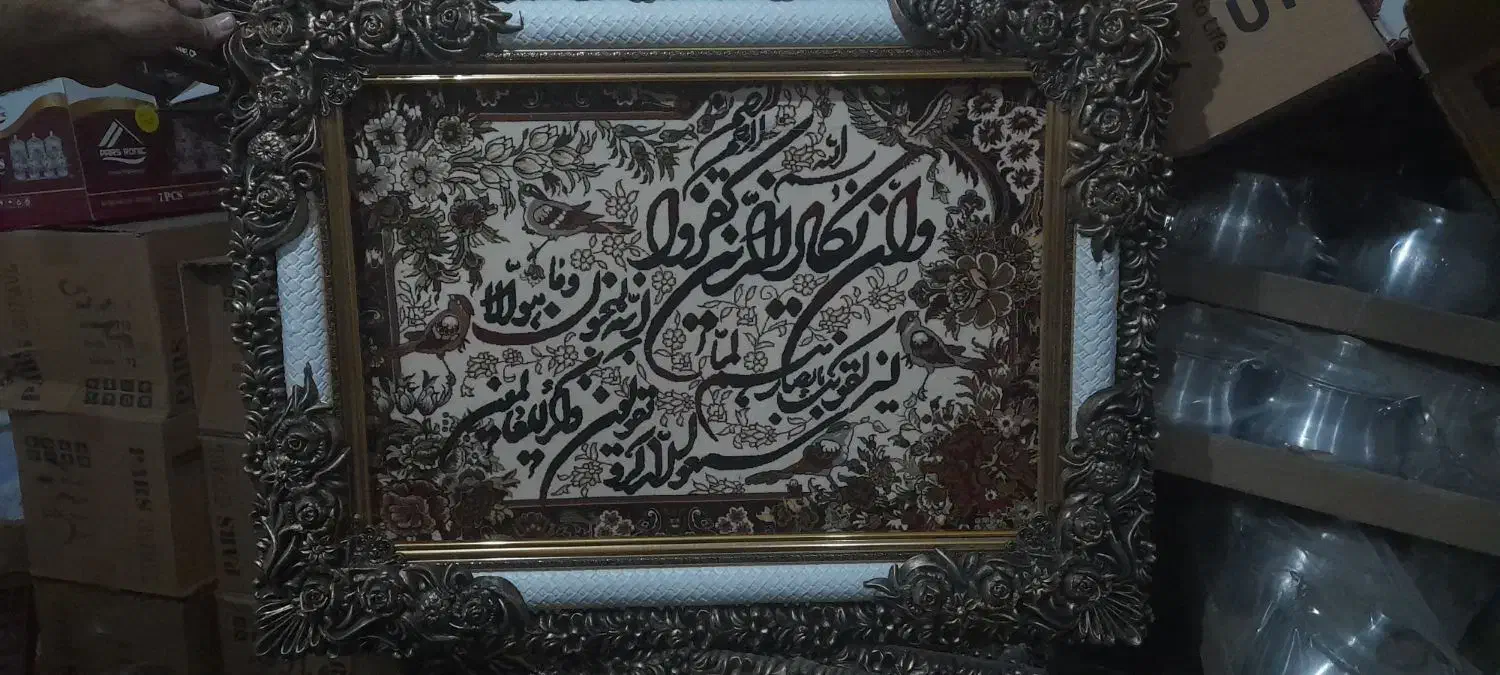 بسم الله الرحمن الرحیم
وان یکاد الذین کفروا
لیزلقونک بابصارهم لما
سمعوا الذکر و یقولون
انه لمجنون وما هو الا
ذکر للعالمین
PARS RONIC
7PCS
to Life
PARS
PARS
PARS